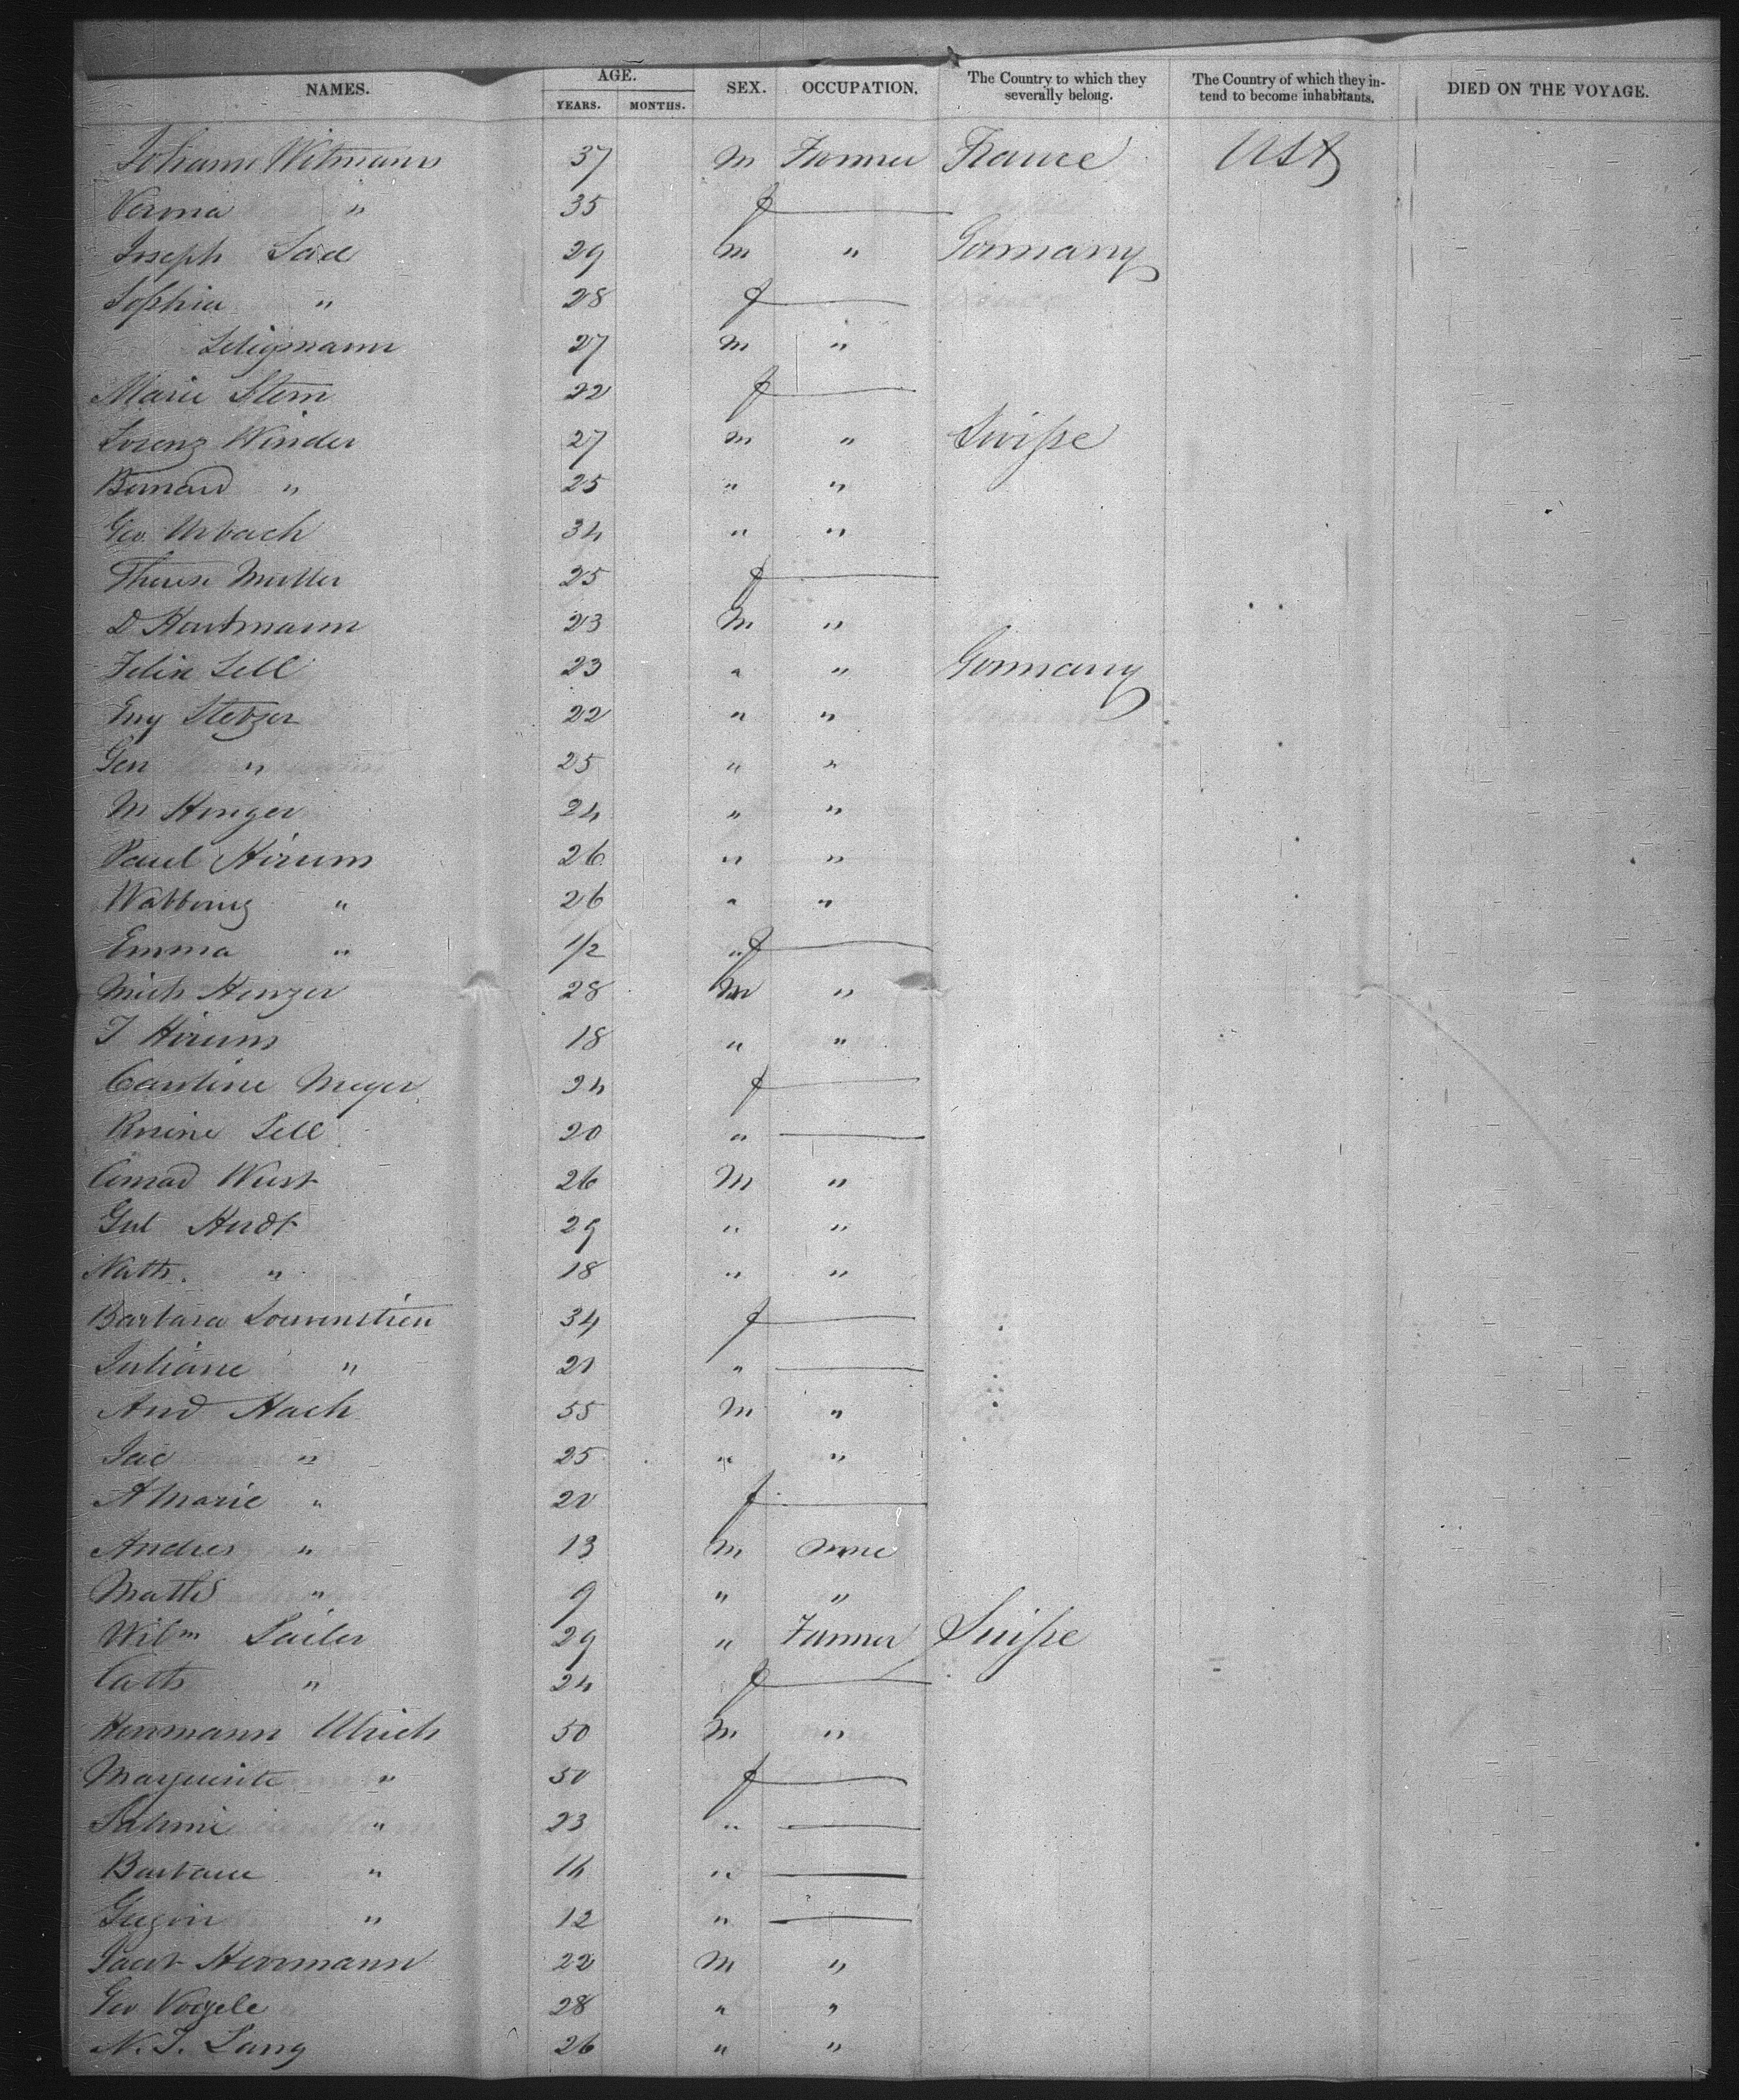 NAMES. AGE. YEARS. MONTHS. SEX. OCCUPATION. The Country to which they severally belong. The Country of which they intend to become inhabitants. DIED ON THE VOYAGE.
Johann Witmann 37 M Farmer France USA
Verma " 35 f
Joseph Sad 29 M " Germany
Sophia " 28 f
Seligmann 27 M "
Marie Stern 22 f
Lorenz Winder 27 M " Swisse
Bernard " 25 " "
Geo Urbach 34 " "
Therese Muller 25 f
D Hartmann 23 M "
Felix Sell 23 " " Germany
Eug Stetzer 22 " "
Gen " 25 " "
M Hinger 24 " "
Paul Hirum 26 " "
" 26 " "
Emma " 1/2 " f
Mich Henzer 28 M "
J Hirum 18 " "
Caroline Meyer 24 f
Rosine Sell 20 "
Conrad Wust 26 M "
Gul Hurdt 29 " "
Nath. " 18 " "
Barbara Loewenstien 34 f
Juliane " 21 "
And Hach 55 M "
Jac " 25 " "
A Marie " 20 f
Andres " 13 M none
Maths " 9 " "
Wilm Sailer 29 " Farmer Suisse
Cath " 24 f
Herrmann Ulrich 50 M "
Marguerite " 50 f
" 23 "
Barbara " 16 "
" 12 "
Herrmann 22 M "
Geo Vogele 28 " "
N. J. Lang 26 " "